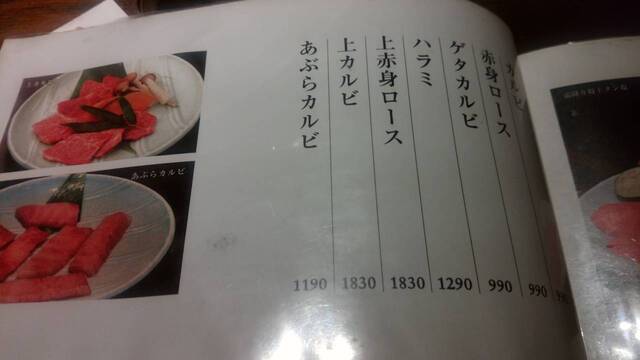 カルビ
赤身ロース 990
ゲタカルビ 990
ハラミ 1290
上赤身ロース 1830
上カルビ 1830
あぶらカルビ 1190
あぶらカルビ